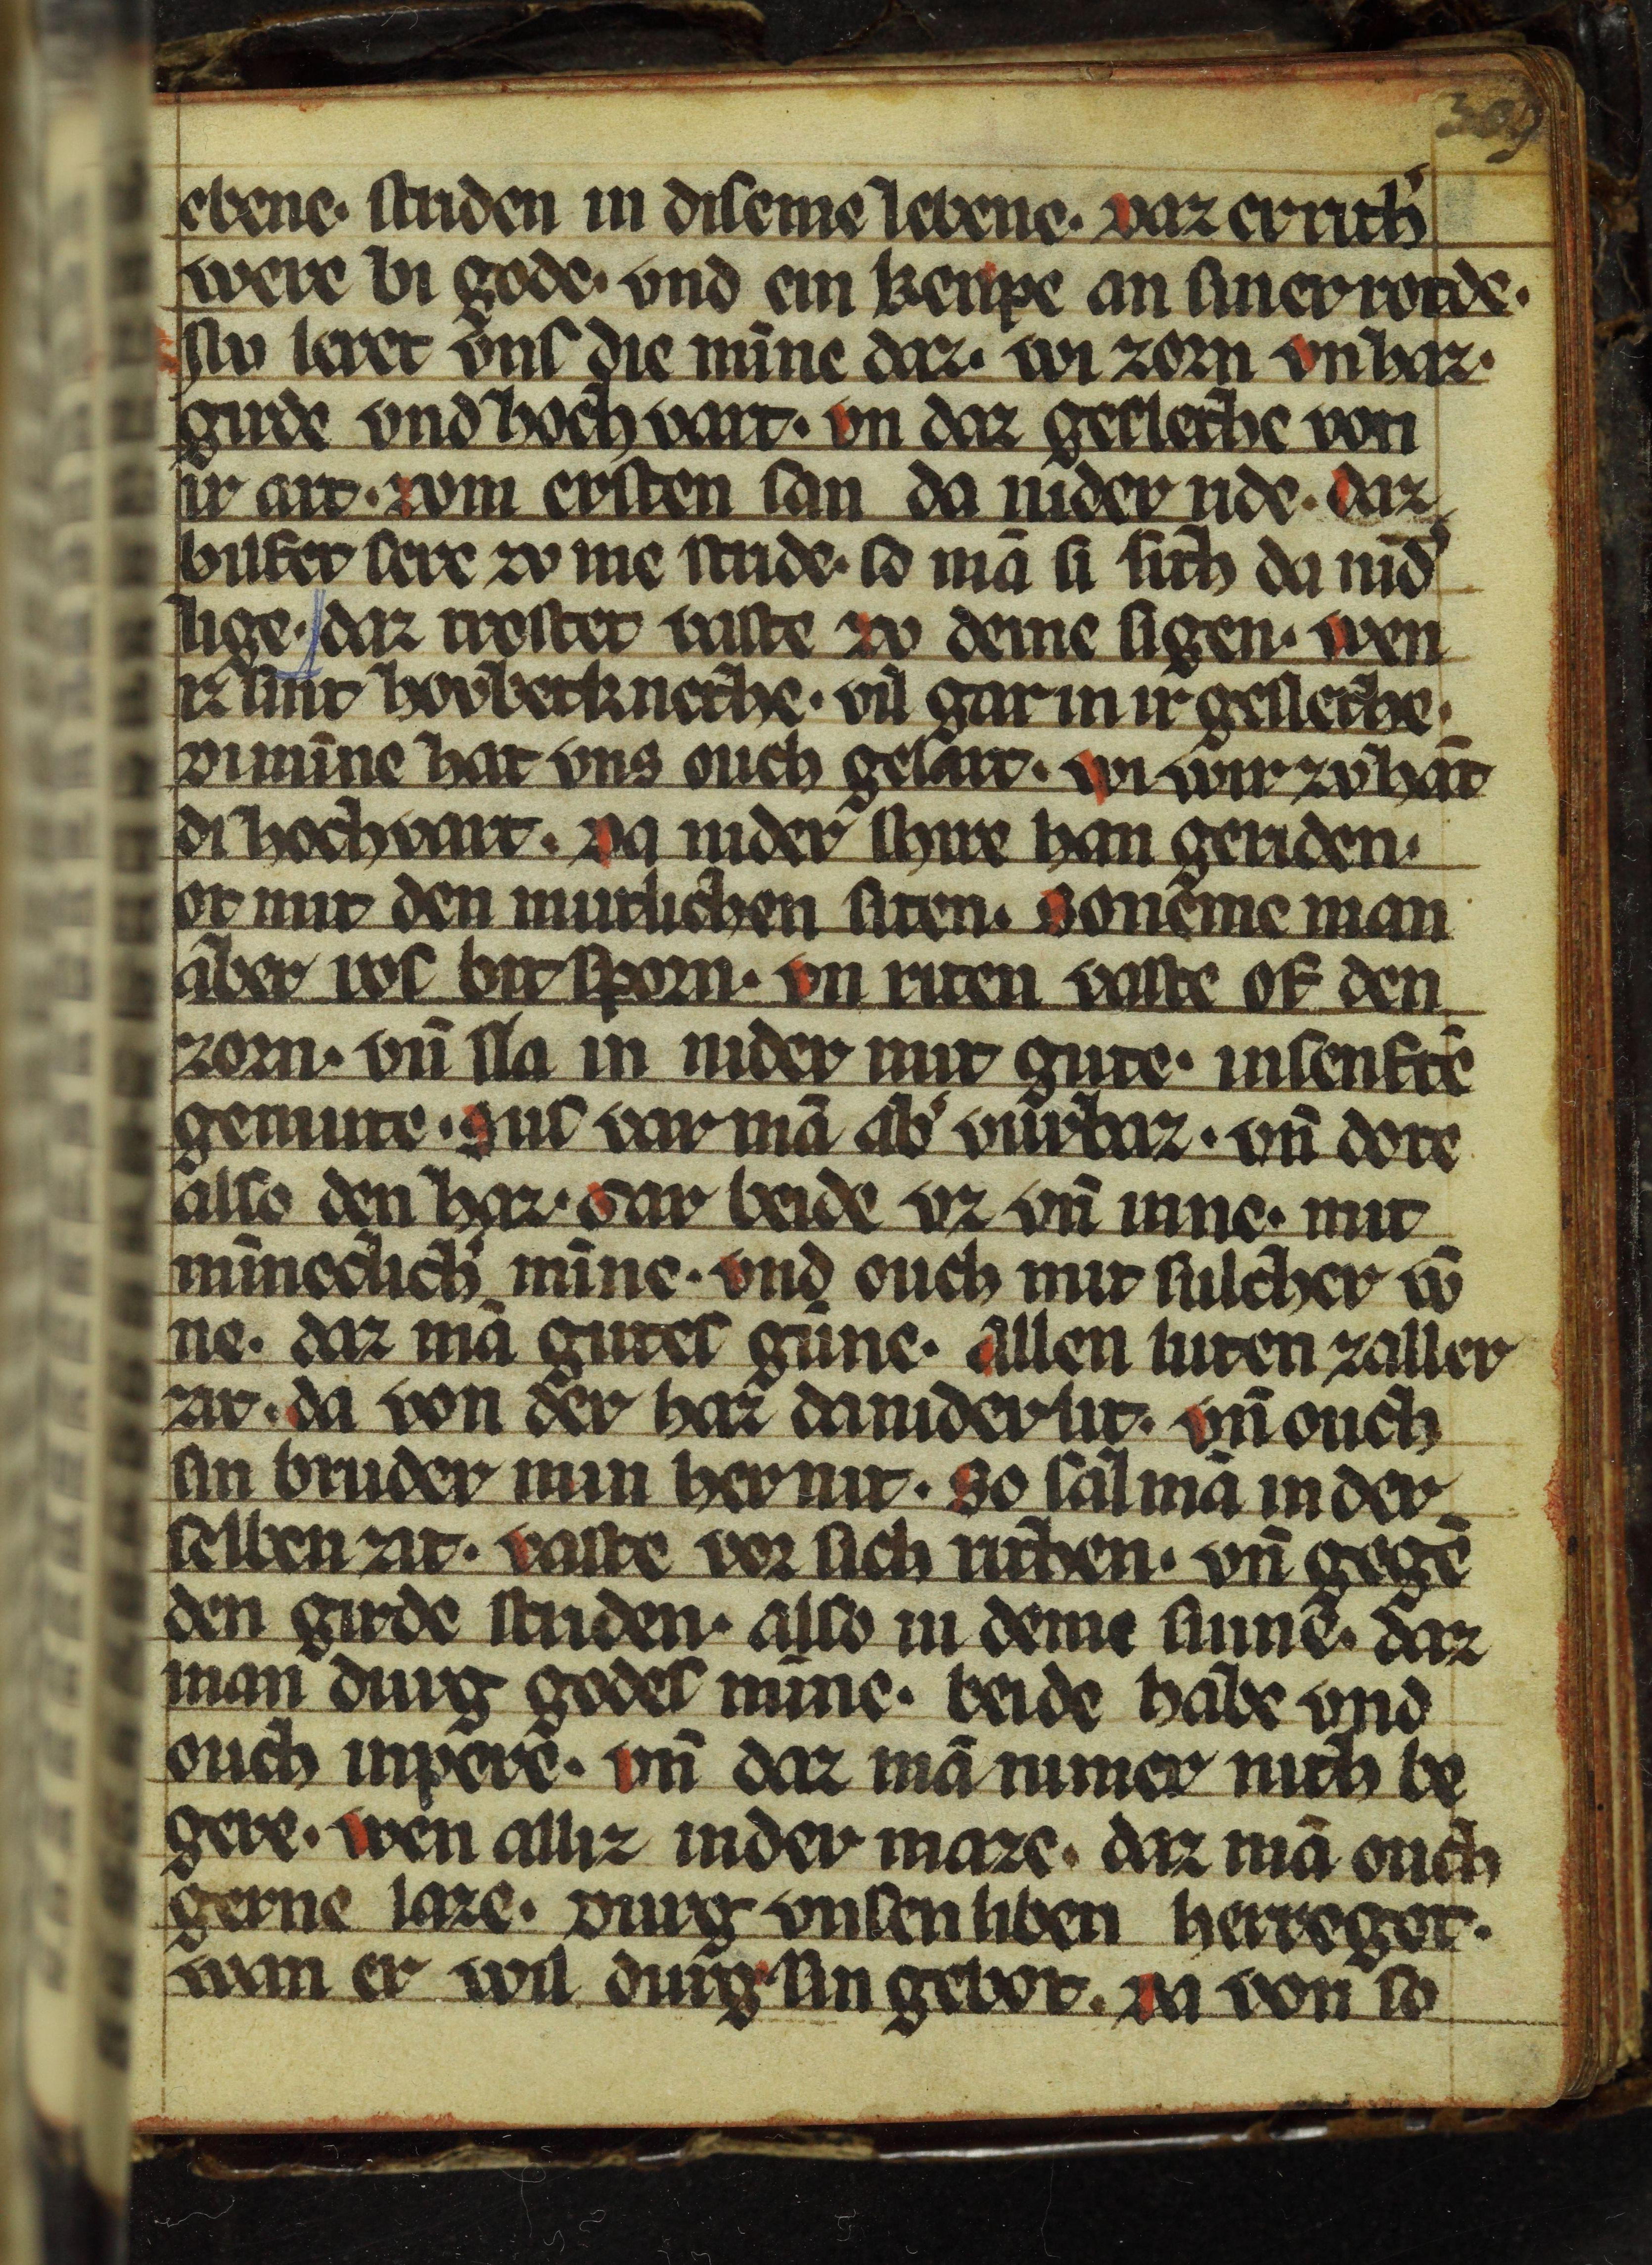 309
ebene. striden in diseme lebene. Daz er rich'
were bi gode. vnd ein kenpe an siner rotde.
Nv leret vns die mīne daz. wi zorn vn haz.
girde vnd hoch vart. vn daz geslethe von
ir art. zvm ersten san da nider ride. daz
hilfet sere zv me stride. so mā si sith da nid'
lige. daz trostet vaste zv deme sigen. wen
iz sint hovbetknethe. vil gar in ir geslethe.
Di mīne hat vns ouch gelart. wi wir zv hāt
di hoch vart. Da nider shire han geriden.
ot mit den mutlichen siten. So neme man
aber ros bit sporn. vn riten vaste of den
zorn. vn̄ sla in nider mit gute. in senftē
gemute. Sus var mā ab' vurbaz. vn̄ dote
also den haz. dar beide vz vn̄ inne. mit
mīneclich' mīne. vnd ouch mit sulcher wū
ne. daz mā gutes gūne. allen luten zaller
zit. da von der haz da nider lit. vn̄ ouch
sin bruder nim her nit. So sal mā in der
selben zit. vaste vor sich rithen. vn̄ gegē
den girde striden. also in deme sinne. daz
man durg godes mīne. beide habe vnd
ouch inpere. vn̄ daz mā nimer nith be
gere. wen alliz in der maze. daz mā ouch
gerne laze. Durg vnsen liben herre got.
wan er wil durg sin gebot. Da von so